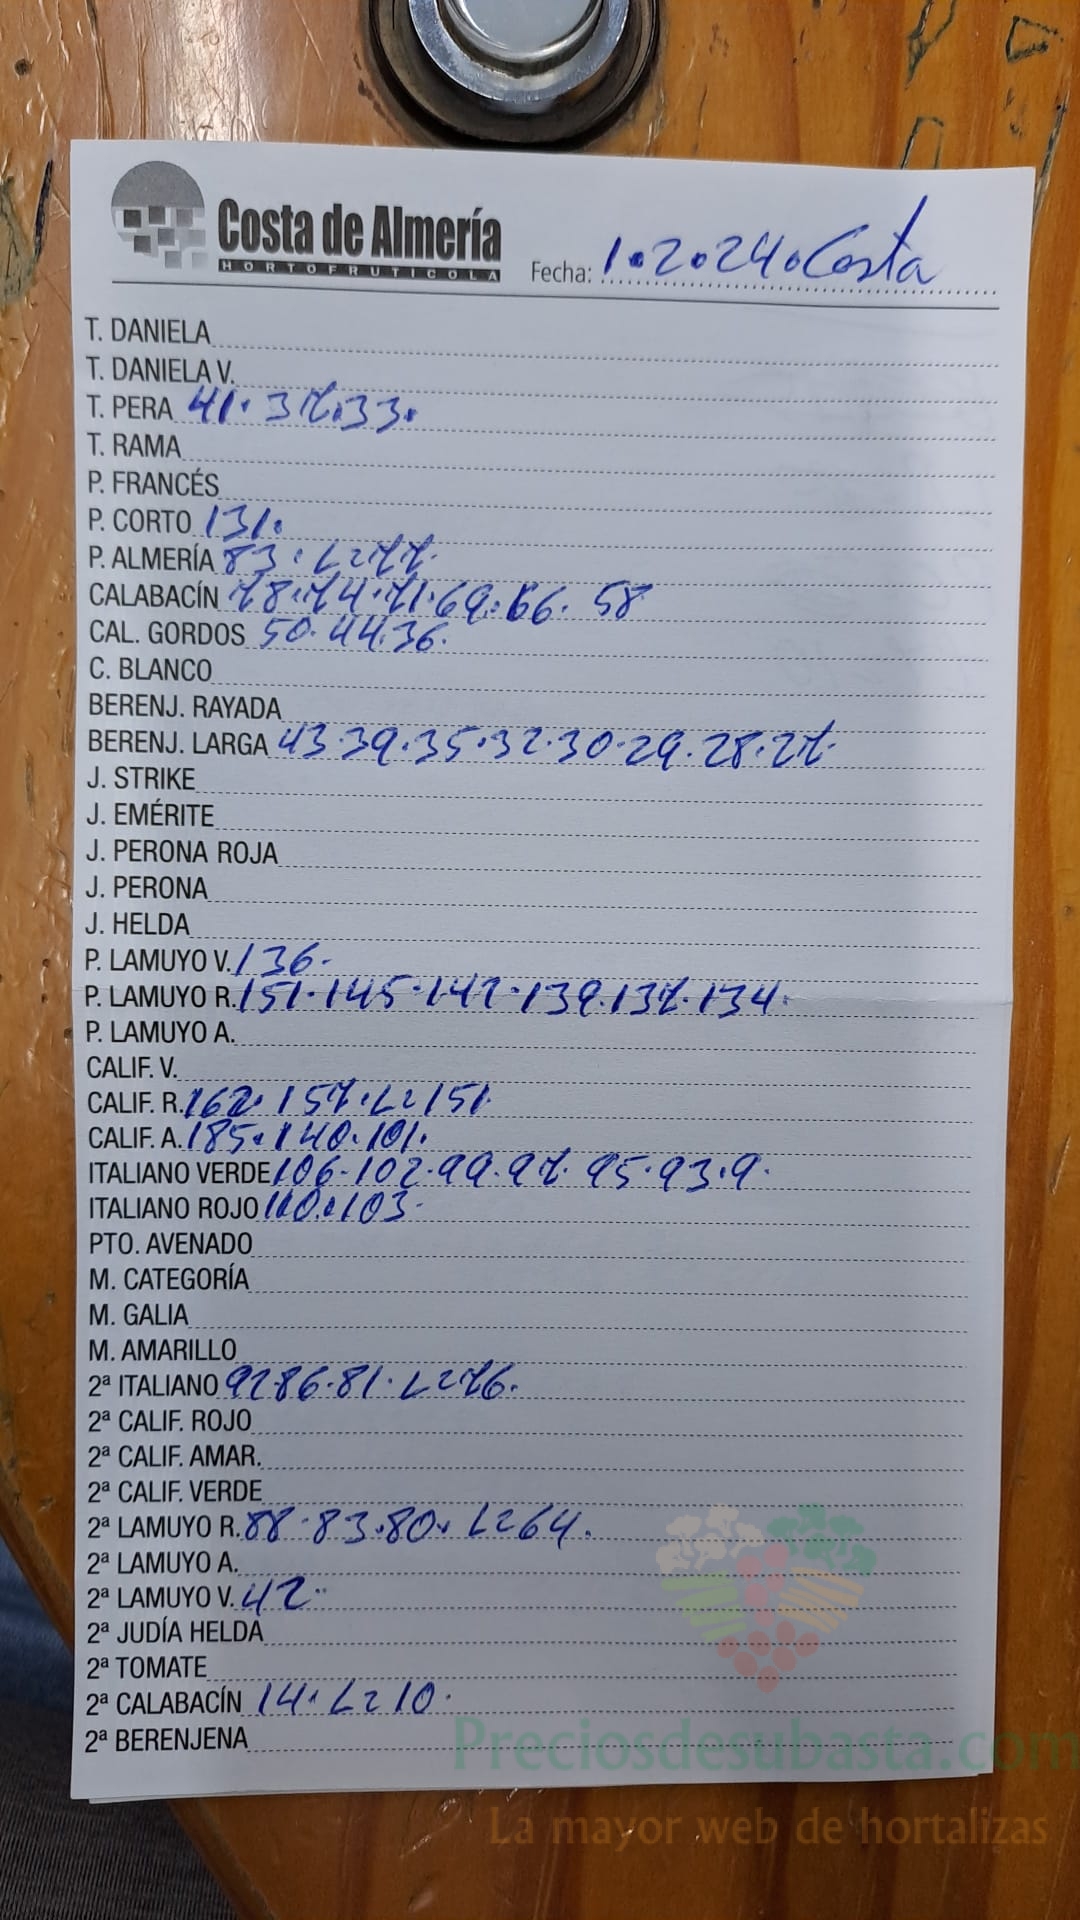 Costa de Almería
HORTOFRUTICOLA
Fecha: 1.2.24. Costa
T. DANIELA
T. DANIELA V.
T. PERA 41. 37. 33.
T. RAMA
P. FRANCÉS
P. CORTO 131.
P. ALMERÍA 83. L=77.
CALABACÍN 78.74.71.69.66. 58
CAL. GORDOS 50.44.36.
C. BLANCO
BERENJ. RAYADA
BERENJ. LARGA 43.39.35.32.30.29.28.27.
J. STRIKE
J. EMÉRITE
J. PERONA ROJA
J. PERONA
J. HELDA
P. LAMUYO V. 136.
P. LAMUYO R. 151.145.142.139.137.134.
P. LAMUYO A.
CALIF. V.
CALIF. R. 162. 157. L=151.
CALIF. A. 185.140.101.
ITALIANO VERDE 106.102.99.97. 95.93.9.
ITALIANO ROJO 110.103.
PTO. AVENADO
M. CATEGORÍA
M. GALIA
M. AMARILLO
2ª ITALIANO 92.86.81. L=76.
2ª CALIF. ROJO
2ª CALIF. AMAR.
2ª CALIF. VERDE
2ª LAMUYO R. 88.83.80. L=64.
2ª LAMUYO A.
2ª LAMUYO V. 42.
2ª JUDÍA HELDA
2ª TOMATE
2ª CALABACÍN 14. L=10.
2ª BERENJENA
Preciosdesubasta.com
La mayor web de hortalizas